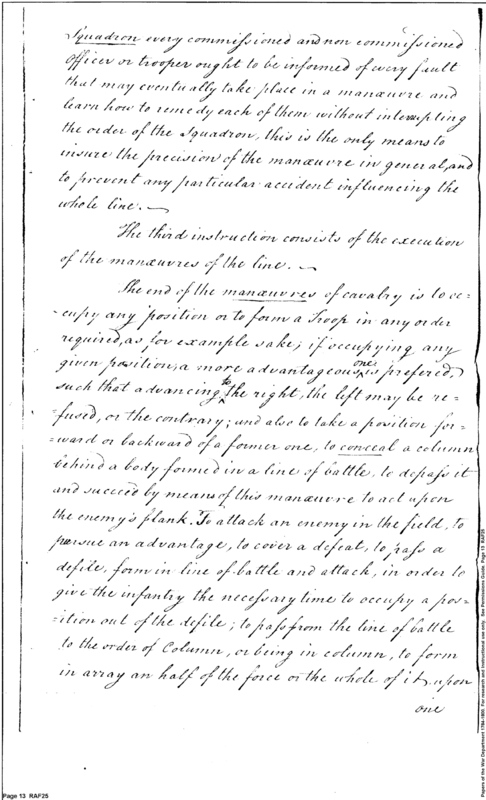 Squadron every commissioned and non commissioned
Officer or trooper ought to be informed of every fault
that may eventually take place in a manœuvre and
learn how to remedy each of them without interrupting
the order of the Squadron, this is the only means to
insure the precision of the manœuvre in general, and
to prevent any particular accident influencing the
whole line. —
The third instruction consists of the execution
of the manœuvres of the line. —
The end of the manœuvres of cavalry is to oc=
=cupy any position or to form a Troop in any order
required, as for example sake; if occupying any
given position, a more advantageous one is prefered,
such that advancing to the right, the left may be re=
fused, or the contrary; and also to take a position for=
=ward or backward of a former one, to conceal a column
behind a body formed in a line of battle, to depass it
and succeed by means of this manœuvre to act upon
the enemy's flank. To attack an enemy in the field, to
pursue an advantage, to cover a defeat, to pass a
defile, form in line of battle and attack, in order to
give the infantry the necessary time to occupy a pos=
=ition out of the defile; to pass from the line of battle
to the order of Column, or being in column, to form
in array an half of the force or the whole of it, upon
one
Page 13 RAF25
Papers of the War Department 1784-1800. For research and instructional use only. See Permissions Guide. Page 13 RAF25